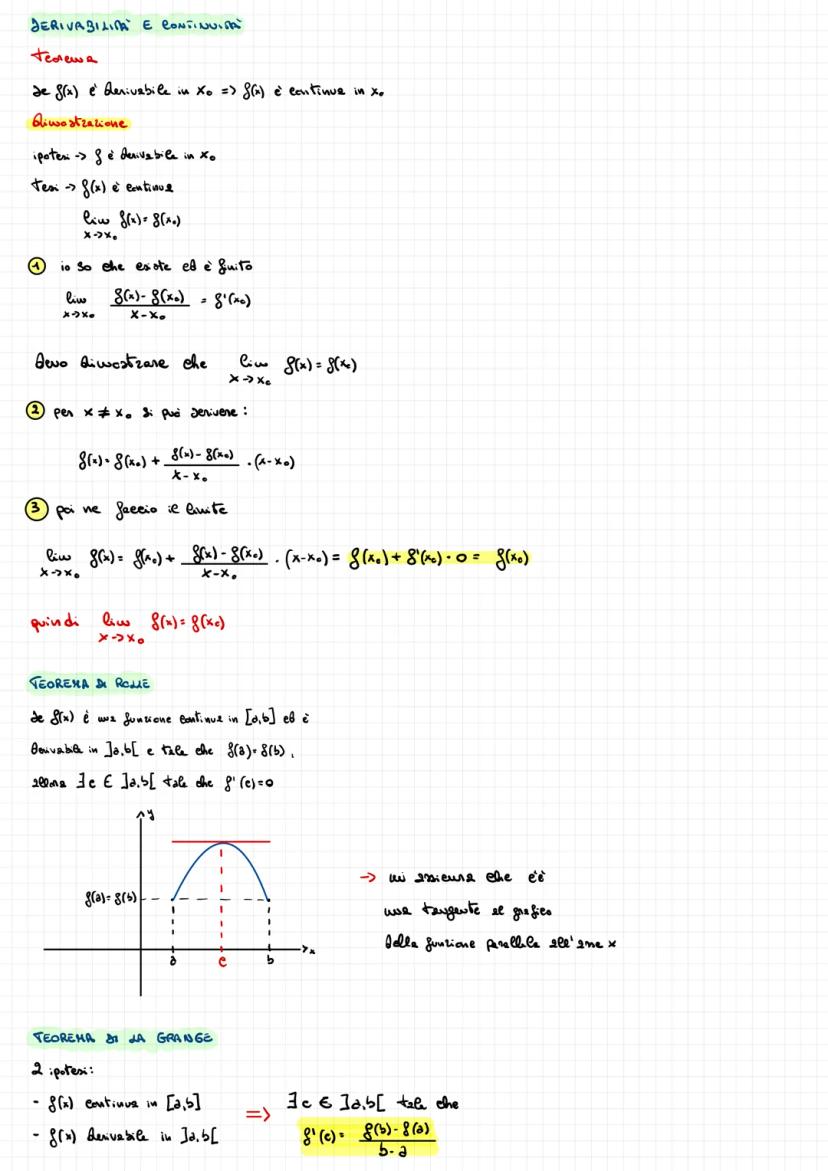 DERIVABILITÀ E CONTINUITÀ
Teorema
Se f(x) è derivabile in x₀ => f(x) è continua in x₀
Dimostrazione
ipotesi -> f è derivabile in x₀
Tesi -> f(x) è continua
lim x->x₀ f(x) = f(x₀)
1 io so che esiste ed è finito
lim x->x₀ (f(x) - f(x₀))/(x - x₀) = f'(x₀)
Devo dimostrare che lim x->x₀ f(x) = f(x₀)
2 per x ≠ x₀ si può scrivere:
f(x) = f(x₀) + (f(x) - f(x₀))/(x - x₀) · (x - x₀)
3 poi ne faccio il limite
lim x->x₀ f(x) = f(x₀) + (f(x) - f(x₀))/(x - x₀) · (x - x₀) = f(x₀) + f'(x₀) · 0 = f(x₀)
quindi lim x->x₀ f(x) = f(x₀)
TEOREMA DI ROLLE
Se f(x) è una funzione continua in [a,b] ed è
derivabile in ]a,b[ e tale che f(a) = f(b),
allora ∃c ∈ ]a,b[ tale che f'(c) = 0
y
f(a) = f(b)
a c b x
-> mi assicura che c'è
una tangente al grafico
della funzione parallela all'asse x
TEOREMA DI LA GRANGE
2 ipotesi:
- f(x) continua in [a,b]
- f(x) derivabile in ]a,b[
=> ∃c ∈ ]a,b[ tale che
f'(c) = (f(b) - f(a))/(b - a)